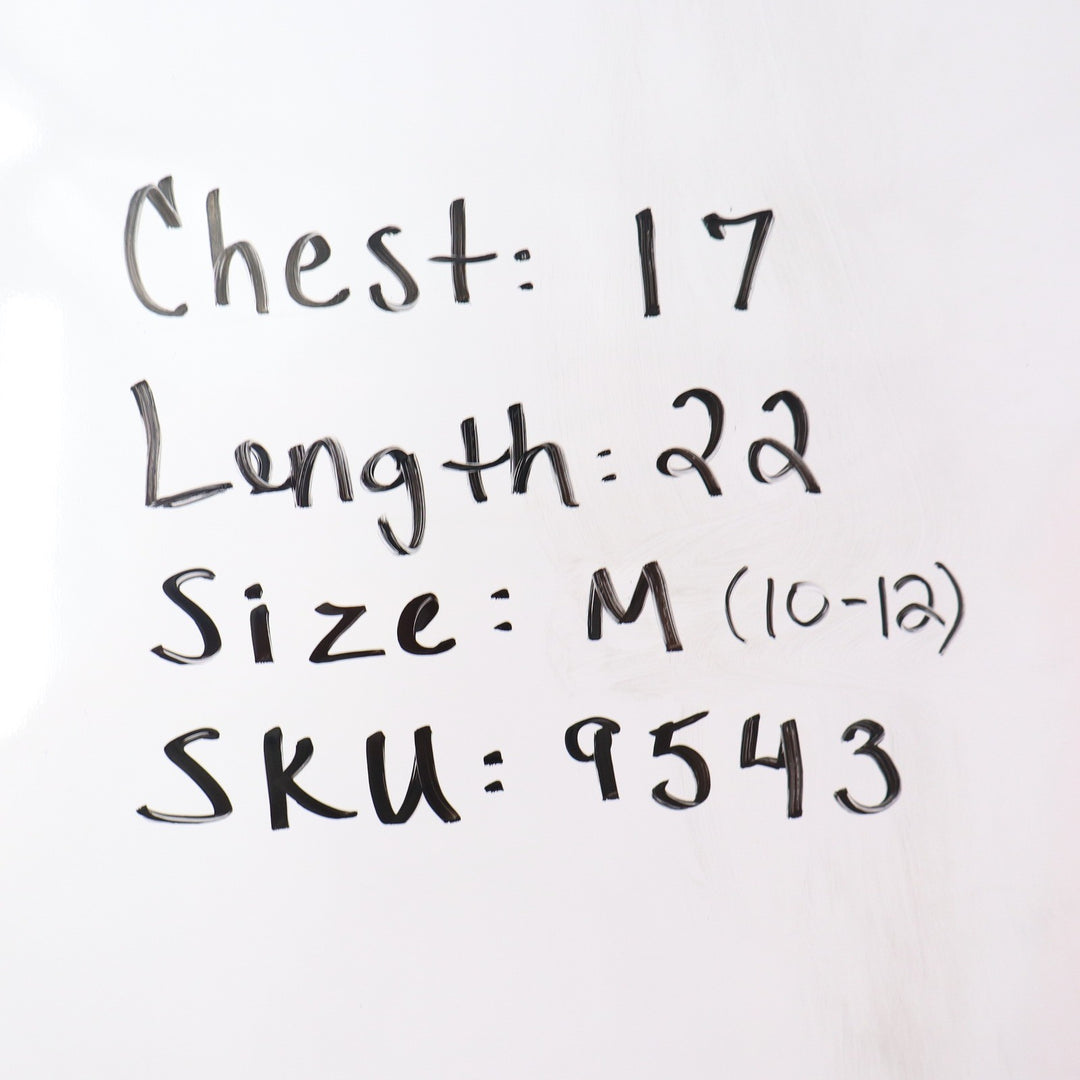 Chest: 17
Length: 22
Size: M (10-12)
SKU: 9543